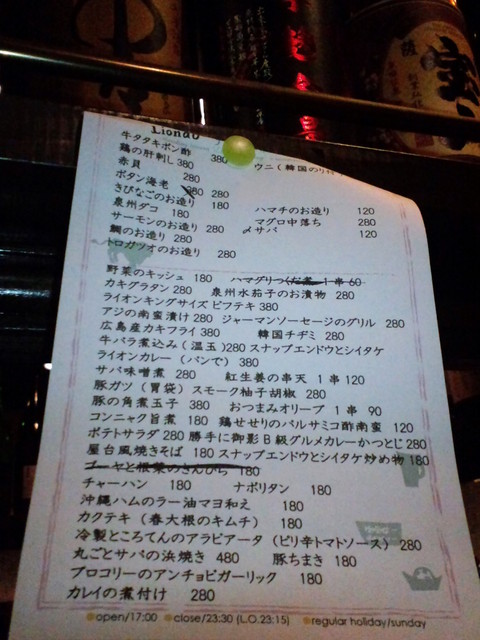 Liondo
牛タタキポン酢 380 ウニ(韓国のり付
鶏の肝刺し 380
赤貝 280
ボタン海老 280
きびなごのお造り 180 ハマチのお造り 120
泉州ダコ 180 マグロ中落ち 280
サーモンのお造り 280 〆サバ 120
鯛のお造り 280
トロガツオのお造り 280
野菜のキッシュ 180 ハマグリつくだ煮 1串60
カキグラタン 280 泉州水茄子のお漬物 280
ライオンキングサイズ ビフテキ 380
アジの南蛮漬け 280 ジャーマンソーセージのグリル 280
広島産カキフライ 380 韓国チヂミ 280
牛バラ煮込み(温玉)280 スナップエンドウとシイタケ
ライオンカレー(パンで)380
サバ味噌煮 280 紅生姜の串天 1串120
豚ガツ(胃袋)スモーク柚子胡椒 280
豚の角煮玉子 380 おつまみオリーブ 1串 90
コンニャク旨煮 180 鶏せせりのバルサミコ酢南蛮 120
ポテトサラダ 280 勝手に御影B級グルメカレーかつとじ 280
屋台風焼きそば 180 スナップエンドウとシイタケ炒め物 180
ゴーヤと根菜のきんぴら 180
チャーハン 180 ナポリタン 180
沖縄ハムのラー油マヨ和え 180
カクテキ(春大根のキムチ) 180
冷製ところてんのアラビアータ(ピリ辛トマトソース) 280
丸ごとサバの浜焼き 480 豚ちまき 180
ブロコリーのアンチョビガーリック 180
カレイの煮付け 280
open/17:00 close/23:30 (L.O.23:15) regular holiday/sunday